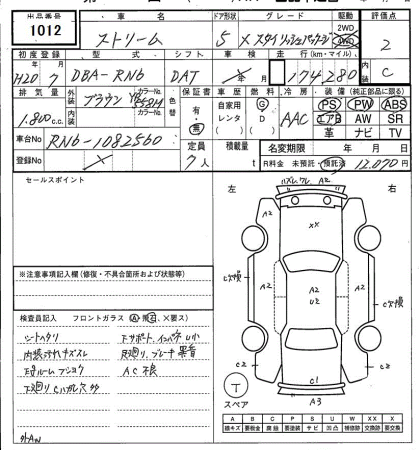 出品番号 1012
車名 ストリーム
ドア形状 5
グレード X スタイリッシュパッケージ
駆動 2WD 4WD
評価点 2
初度登録 H20年7月
型式 DBA-RN6
シフト DAT
車検
走行(km・マイル) 174280
内装 C
排気量 1,800c.c.
外装 ブラウン カラーNo. YR558H
内装 カラーNo.
色替
保証書 有・無
車歴 自家用 レンタ
燃料 G D
冷房 AAC
装備(純正部品に限る)
PS PW ABS
エアB AW SR
革 ナビ TV
車台No RN6-1082560
定員 7人
積載量 t
名変期限 年 月 日
登録No
R料金 未預託 預託済 12,070円
セールスポイント
左 右
A2
A2
XX
A2
A2
A2
U2
C2
C2
C1
A3
スペア
※注意事項記入欄(修復・不具合箇所および状態等)
検査員記入 フロントガラス (A・飛石、×要ス)
シートヘタリ 下サポート、インパネ U小
内張汚れキズスレ 足廻り、ブレーキ異音
荷室ルームフショク AC不良
下廻りCハガレ穴多
外AW
A B C P S U W XX X
線キズ 要板金 腐蝕 要塗装 サビ 凹凸 補修跡 交換跡 要交換